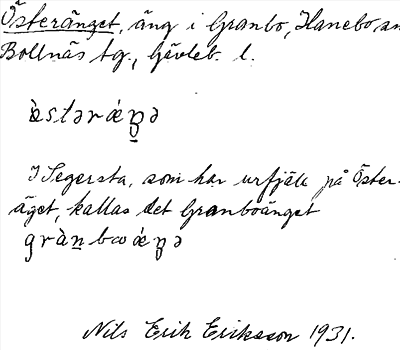 Österänget, äng i Granbo, Hanebo, an
Bollnäs tg., Gävleb. l.
I Segersta, som har urfjäll på Öster-
äget, kallas det Granboänget
Nils Erik Eriksson 1931.